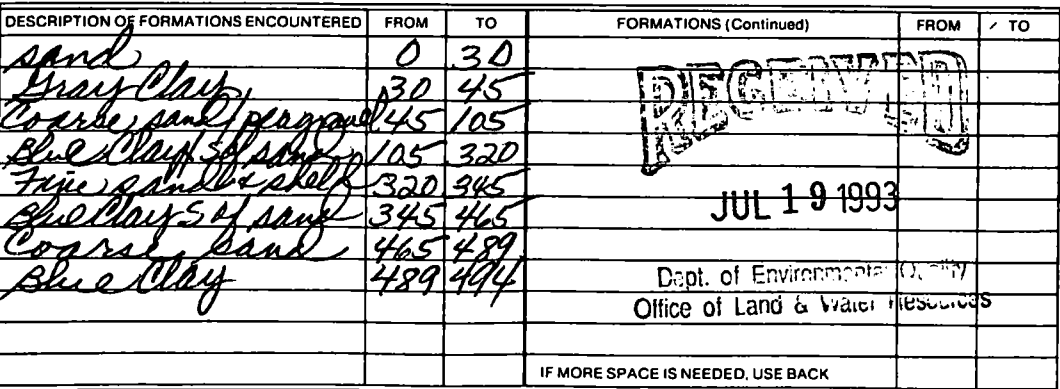 DESCRIPTION OF FORMATIONS ENCOUNTERED FROM TO FORMATIONS (Continued) FROM TO
sand 0 30
Gray Clay 30 45
Coarse sand/pea gravel 45 105
Blue Clay S of sand 105 320
Fine sand & shell 320 345
Blue Clay S of sand 345 465
Coarse sand 465 489
Blue Clay 489 494
RECEIVED
JUL 19 1993
Dept. of Environmental Quality
Office of Land & Water Resources
IF MORE SPACE IS NEEDED, USE BACK